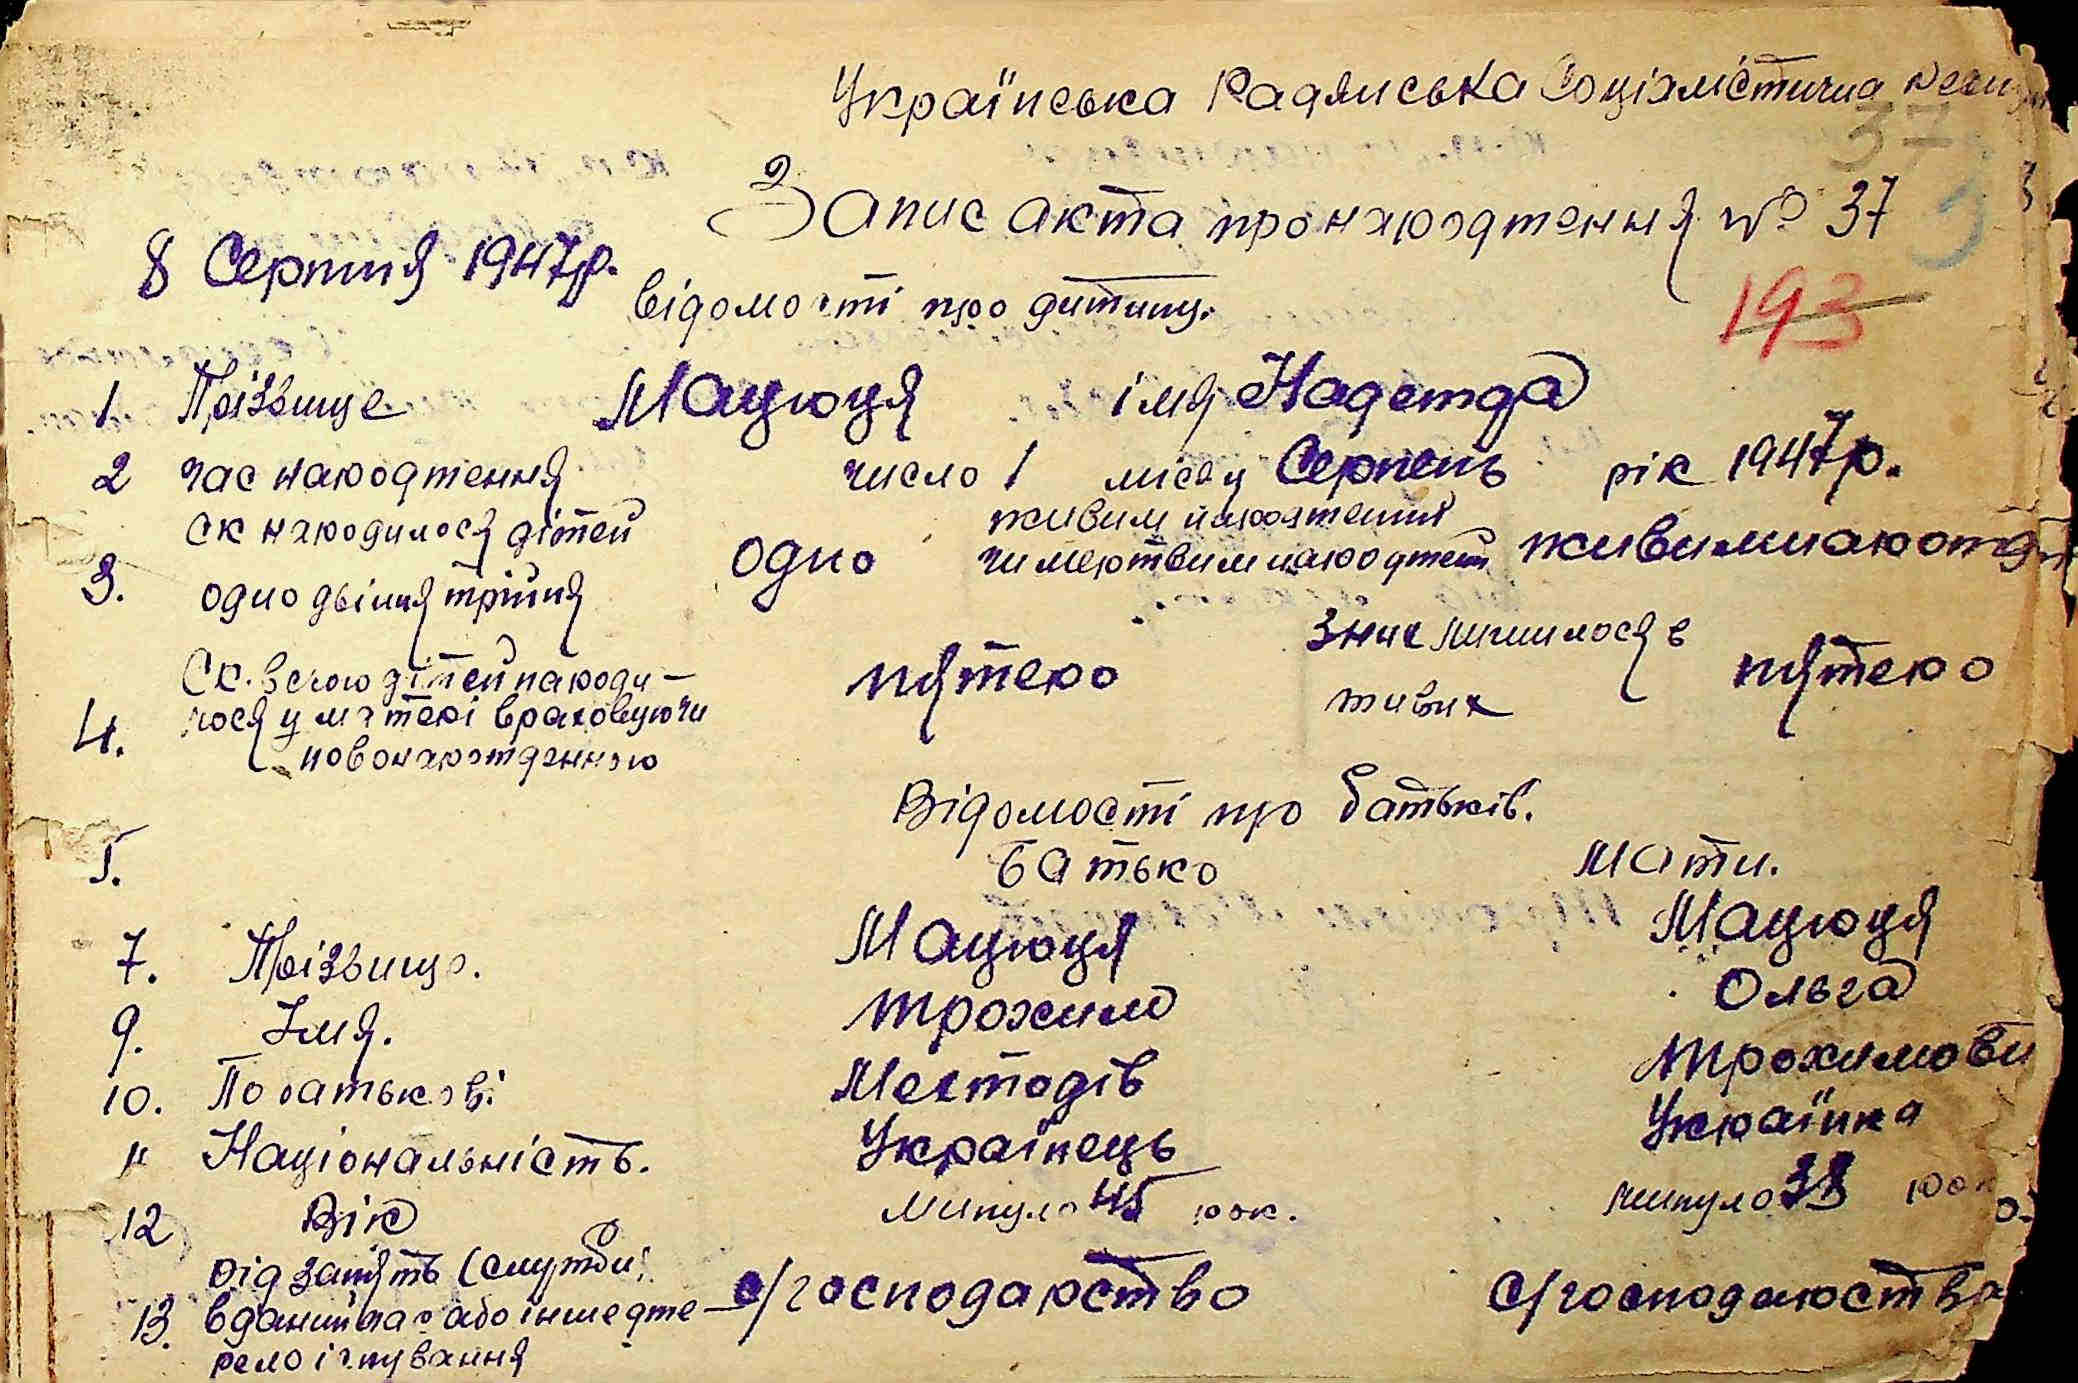 Українська Радянська Соціалістична
37
Запис акта про народження № 37
8 Серпня 1947р.
193
Відомості про дитину.
1 Прізвище Мацюця імя Надежда
2 час народження число 1 місяц Серпень рік 1947р.
3. ск народилося дітей
одно двійня трійня одно живим народження
чи мертвим народжен живим
4. Ск. всього дітей народи-
лося у матері враховуючи
новонарожденного пятеро
З них лишилося в
живих пятеро
Відомості про батьків.
5. Батько Мати.
7. Прізвище. Мацюця Мацюця
9. Імя. Трохим Ольга
10. По батькові Трохимови
11 Національність. Українець Українка
12 Вік минуло 45 рок. минуло рок
13. Рід занять (служби)
в даний час або інше дже-
рело існування с/господарство с/господарство